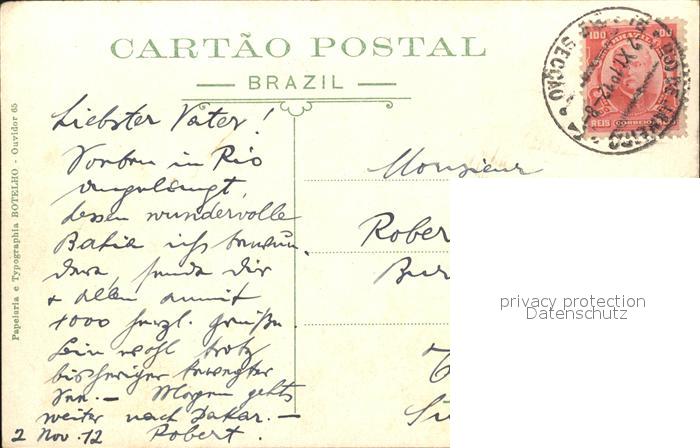 CARTÃO POSTAL
BRAZIL
Papelaria e Typographia BOTELHO - Ouvidor 65
100 BRAZIL 100
REIS CORREIO
SECÇÃO
Liebster Vater!
Soeben in Rio
angelangt,
dessen wundervolle
Bahia ich bewun-
dere, sende Dir
+ allen damit
1000 herzl. Grüße.
wohl trotz
bisheriger bewegter
See. — Morgen gehts
weiter nach Dakar. —
2 Nov. 12 Robert.
Monsieur
Rober
privacy protection
Datenschutz